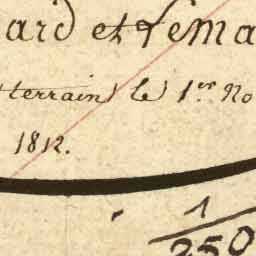 ard et Lema
terrain le 1er No
1812.
1
250